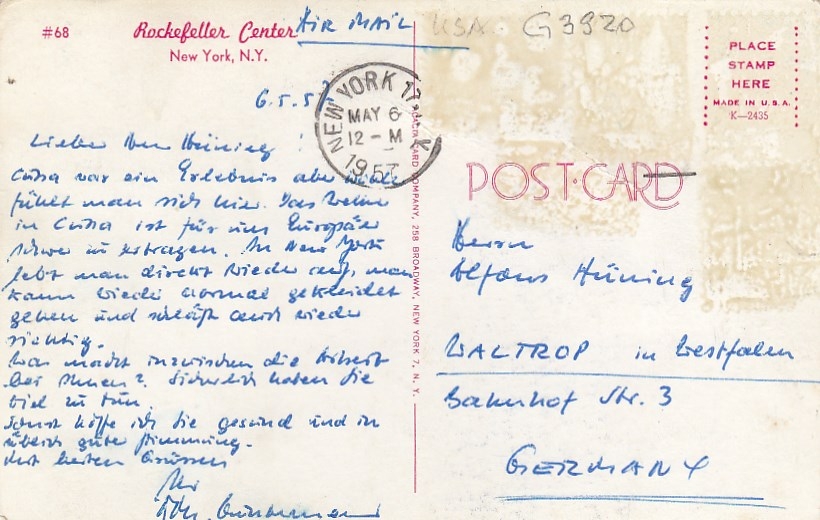 #68
Rockefeller Center
New York, N.Y.
AIR MAIL
USA G3920
PLACE
STAMP
HERE
MADE IN U.S.A.
K—2435
NEW YORK 17
MAY 6
12 - M
1957
6.5.57
Lieber Herr Hüning!
Cuba war ein Erlebnis aber
fühlt man sich hier. Das
in Cuba ist für uns Europäer
schwer zu ertragen. In New York
lebt man direkt wieder auf, man
kann wieder normal gekleidet
gehen und schläft auch wieder
richtig.
Was macht inzwischen die Arbeit
bei Ihnen? Sicherlich haben Sie
viel zu tun.
Sonst hoffe ich Sie gesund und in
üblich guter Stimmung.
Mit besten Grüssen
Ihr
CARD COMPANY, 258 BROADWAY, NEW YORK 7, N. Y.
POST·CARD
Herrn
Alfons Hüning
WALTROP in Westfalen
Bahnhof Str. 3
GERMANY